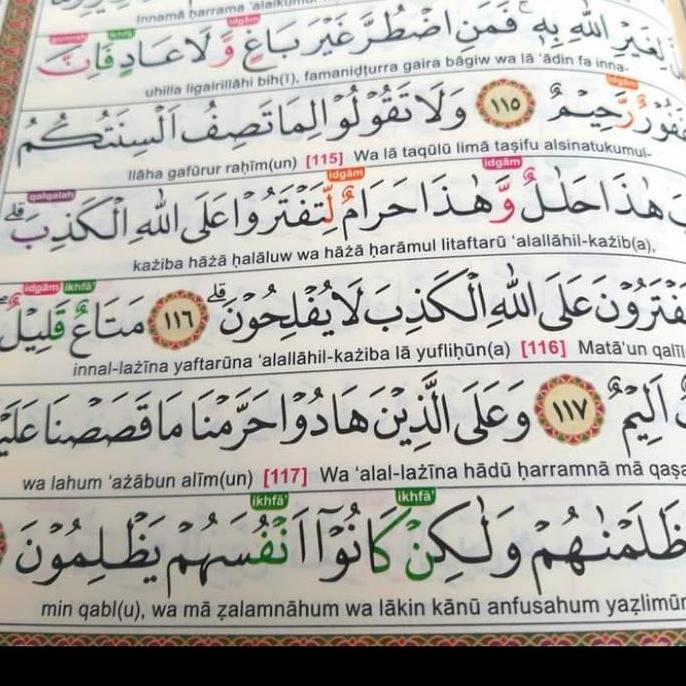 Innamā ḥarrama 'alaikumul
idgām
لِغَيْرِ اللّٰهِ بِهٖۚ فَمَنِ اضْطُرَّ غَيْرَ بَاغٍ وَّلَا عَادٍ فَاِنَّ
uhilla ligairillāhi bih(ī), famaniḍturra gaira bāgiw wa lā 'ādin fa inna-
idgām
غَفُوْرٌ رَّحِيْمٌ ١١٥ وَلَا تَقُوْلُوْا لِمَا تَصِفُ اَلْسِنَتُكُمُ
llāha gafūrur raḥīm(un) [115] Wa lā taqūlū limā taṣifu alsinatukumul-
qalqalah idgām idgām
هٰذَا حَلٰلٌ وَّهٰذَا حَرَامٌ لِّتَفْتَرُوْا عَلَى اللّٰهِ الْكَذِبَۗ
każiba hāżā ḥalāluw wa hāżā ḥarāmul litaftarū 'alallāhil-każib(a),
idgām ikhfā'
يَفْتَرُوْنَ عَلَى اللّٰهِ الْكَذِبَ لَا يُفْلِحُوْنَۗ ١١٦ مَتَاعٌ قَلِيْلٌ
innal-lażīna yaftarūna 'alallāhil-każiba lā yufliḥūn(a) [116] Matā'un qalīl
اَلِيْمٌ ١١٧ وَعَلَى الَّذِيْنَ هَادُوْا حَرَّمْنَا مَا قَصَصْنَا
wa lahum 'ażābun alīm(un) [117] Wa 'alal-lażīna hādū ḥarramnā mā qaṣa
ikhfā' ikhfā'
ظَلَمْنٰهُمْ وَلٰكِنْ كَانُوْٓا اَنْفُسَهُمْ يَظْلِمُوْنَ
min qabl(u), wa mā ẓalamnāhum wa lākin kānū anfusahum yaẓlimūn